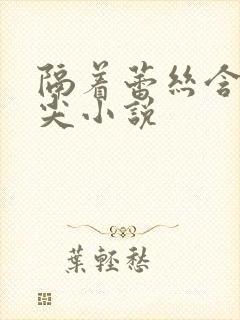 隔着蕾丝含
尖小說
葉輕愁